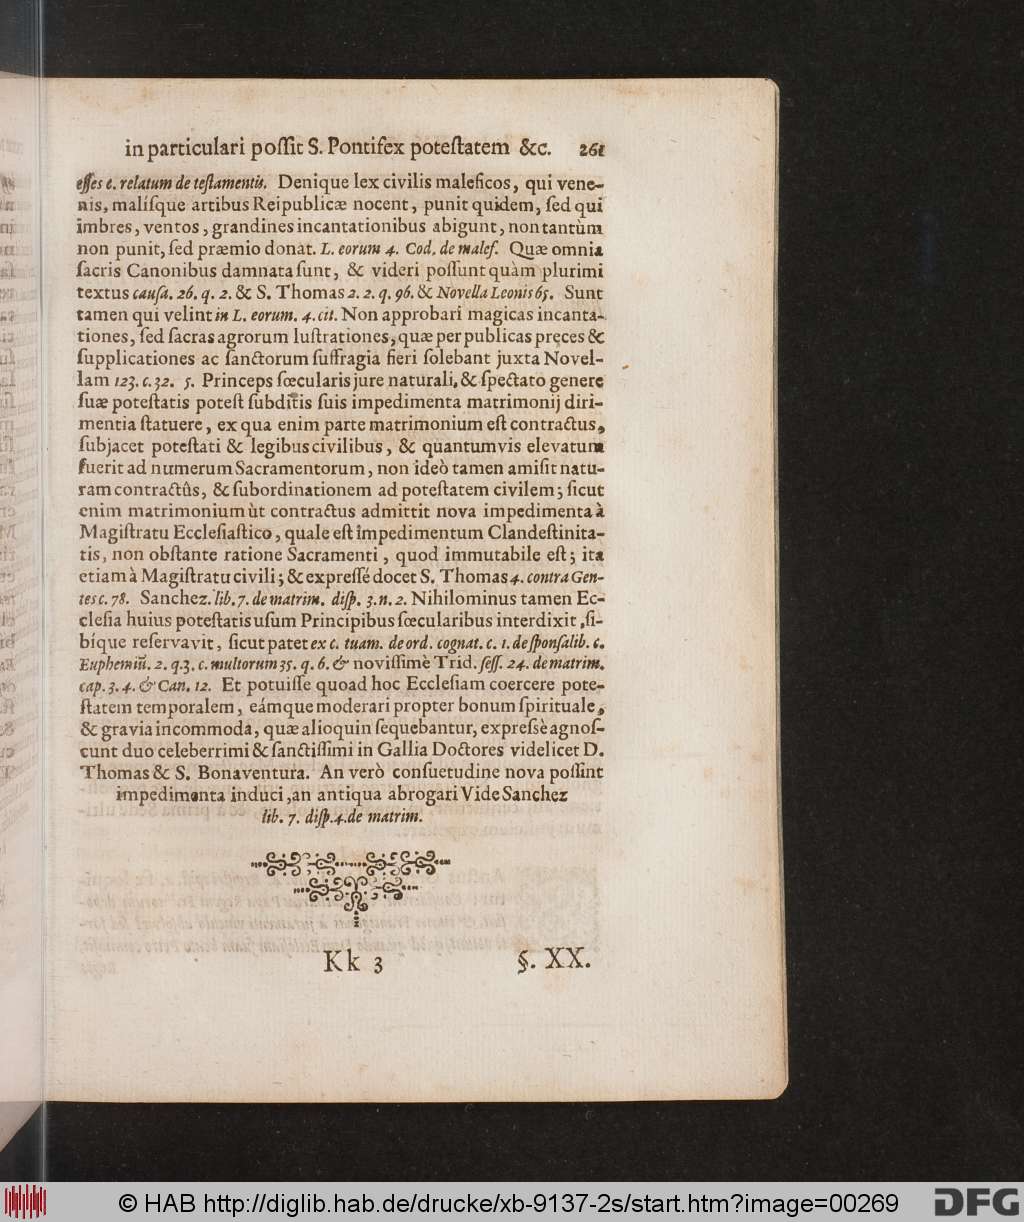 in particulari poſſit S. Pontifex poteſtatem &c. 261
eſſes e. relatum de teſtamentis. Denique lex civilis maleficos, qui vene-
nis, malíſque artibus Reipublicæ nocent, punit quidem, ſed qui
imbres, ventos, grandines incantationibus abigunt, non tantùm
non punit, ſed præmio donat. L. eorum 4. Cod. de malef. Quæ omnia
ſacris Canonibus damnata ſunt, & videri poſſunt quàm plurimi
textus cauſa. 26. q. 2. & S. Thomas 2. 2. q. 96. & Novella Leonis 65. Sunt
tamen qui velint in L. eorum. 4. cit. Non approbari magicas incanta-
tiones, ſed ſacras agrorum luſtrationes, quæ per publicas preces &
ſupplicationes ac ſanctorum ſuffragia fieri ſolebant juxta Novel-
lam 123. c. 32. 5. Princeps ſœcularis jure naturali, & ſpectato genere
ſuæ poteſtatis poteſt ſubditis ſuis impedimenta matrimonij diri-
mentia ſtatuere, ex qua enim parte matrimonium eſt contractus,
ſubjacet poteſtati & legibus civilibus, & quantumvis elevatum
fuerit ad numerum Sacramentorum, non ideò tamen amiſit natu-
ram contractûs, & ſubordinationem ad poteſtatem civilem; ſicut
enim matrimonium ùt contractus admittit nova impedimenta à
Magiſtratu Eccleſiaſtico, quale eſt impedimentum Clandeſtinita-
tis, non obſtante ratione Sacramenti, quod immutabile eſt; ita
etiam à Magiſtratu civili; & expreſſé docet S. Thomas 4. contra Gen-
tes c. 78. Sanchez. lib. 7. de matrim. diſp. 3. n. 2. Nihilominus tamen Ec-
cleſia huius poteſtatis uſum Principibus ſœcularibus interdixit, ſi-
bíque reſervavit, ſicut patet ex c. tuam. de ord. cognat. c. 1. de ſponſalib. c.
Euphemiū. 2. q. 3. c. multorum 35. q. 6. & noviſſimè Trid. ſeſſ. 24. de matrim.
cap. 3. 4. & Can. 12. Et potuiſſe quoad hoc Eccleſiam coercere pote-
ſtatem temporalem, eámque moderari propter bonum ſpirituale,
& gravia incommoda, quæ alioquin ſequebantur, expreſsè agnoſ-
cunt duo celeberrimi & ſanctiſſimi in Gallia Doctores videlicet D.
Thomas & S. Bonaventura. An verò conſuetudine nova poſſint
impedimenta induci, an antiqua abrogari Vide Sanchez
lib. 7. diſp. 4. de matrim.
Kk 3 §. XX.
© HAB http://diglib.hab.de/drucke/xb-9137-2s/start.htm?image=00269
DFG